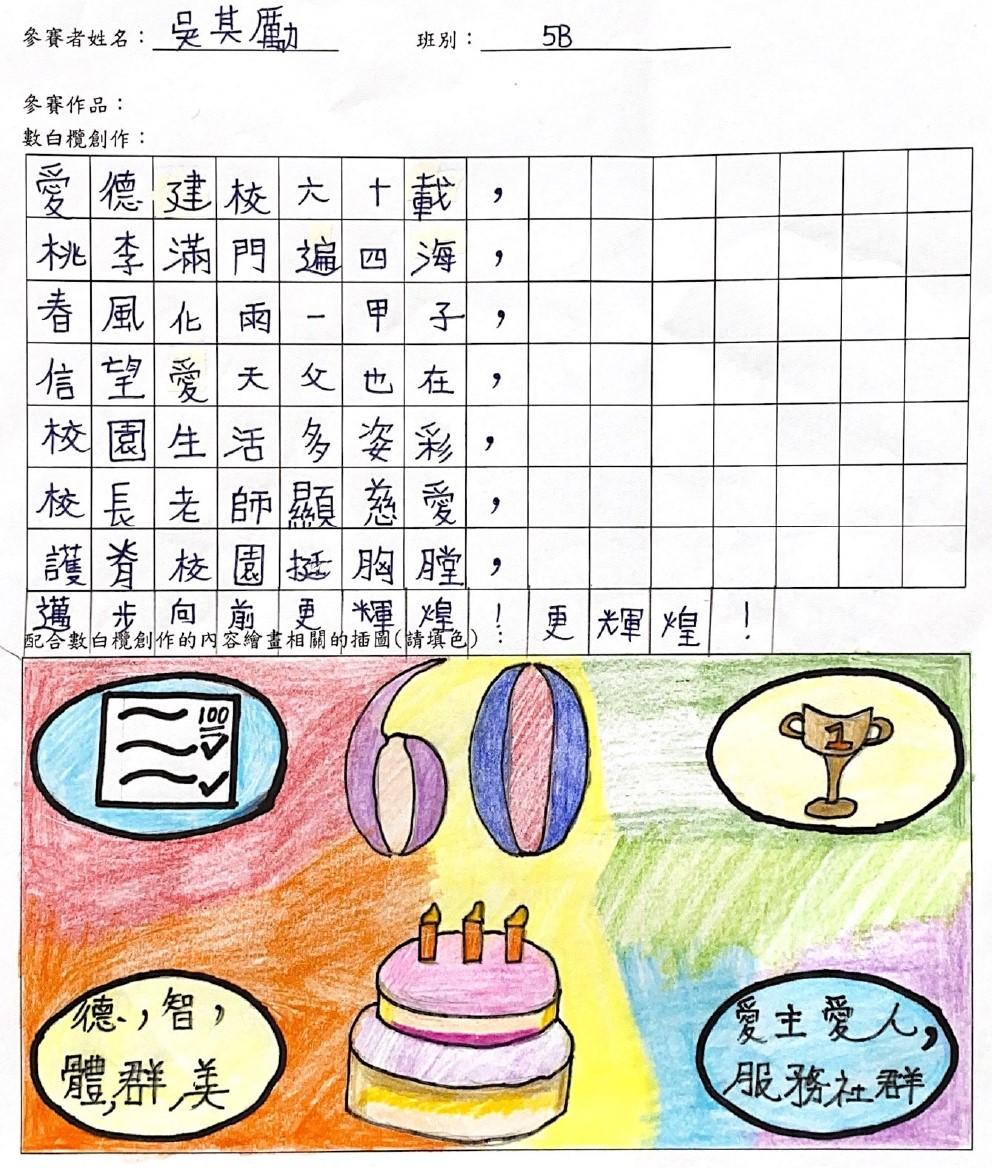 參賽者姓名：吳其勵 班別：5B
參賽作品：
數白欖創作：
愛德建校六十載，
桃李滿門遍四海，
春風化雨一甲子，
信望愛天父也在，
校園生活多姿彩，
校長老師顯慈愛，
護脊校園挺胸膛，
邁步向前更輝煌！更輝煌！
配合數白欖創作的內容繪畫相關的插圖(請填色)：
100
60
1
德，智，
體，群，美
愛主愛人，
服務社群